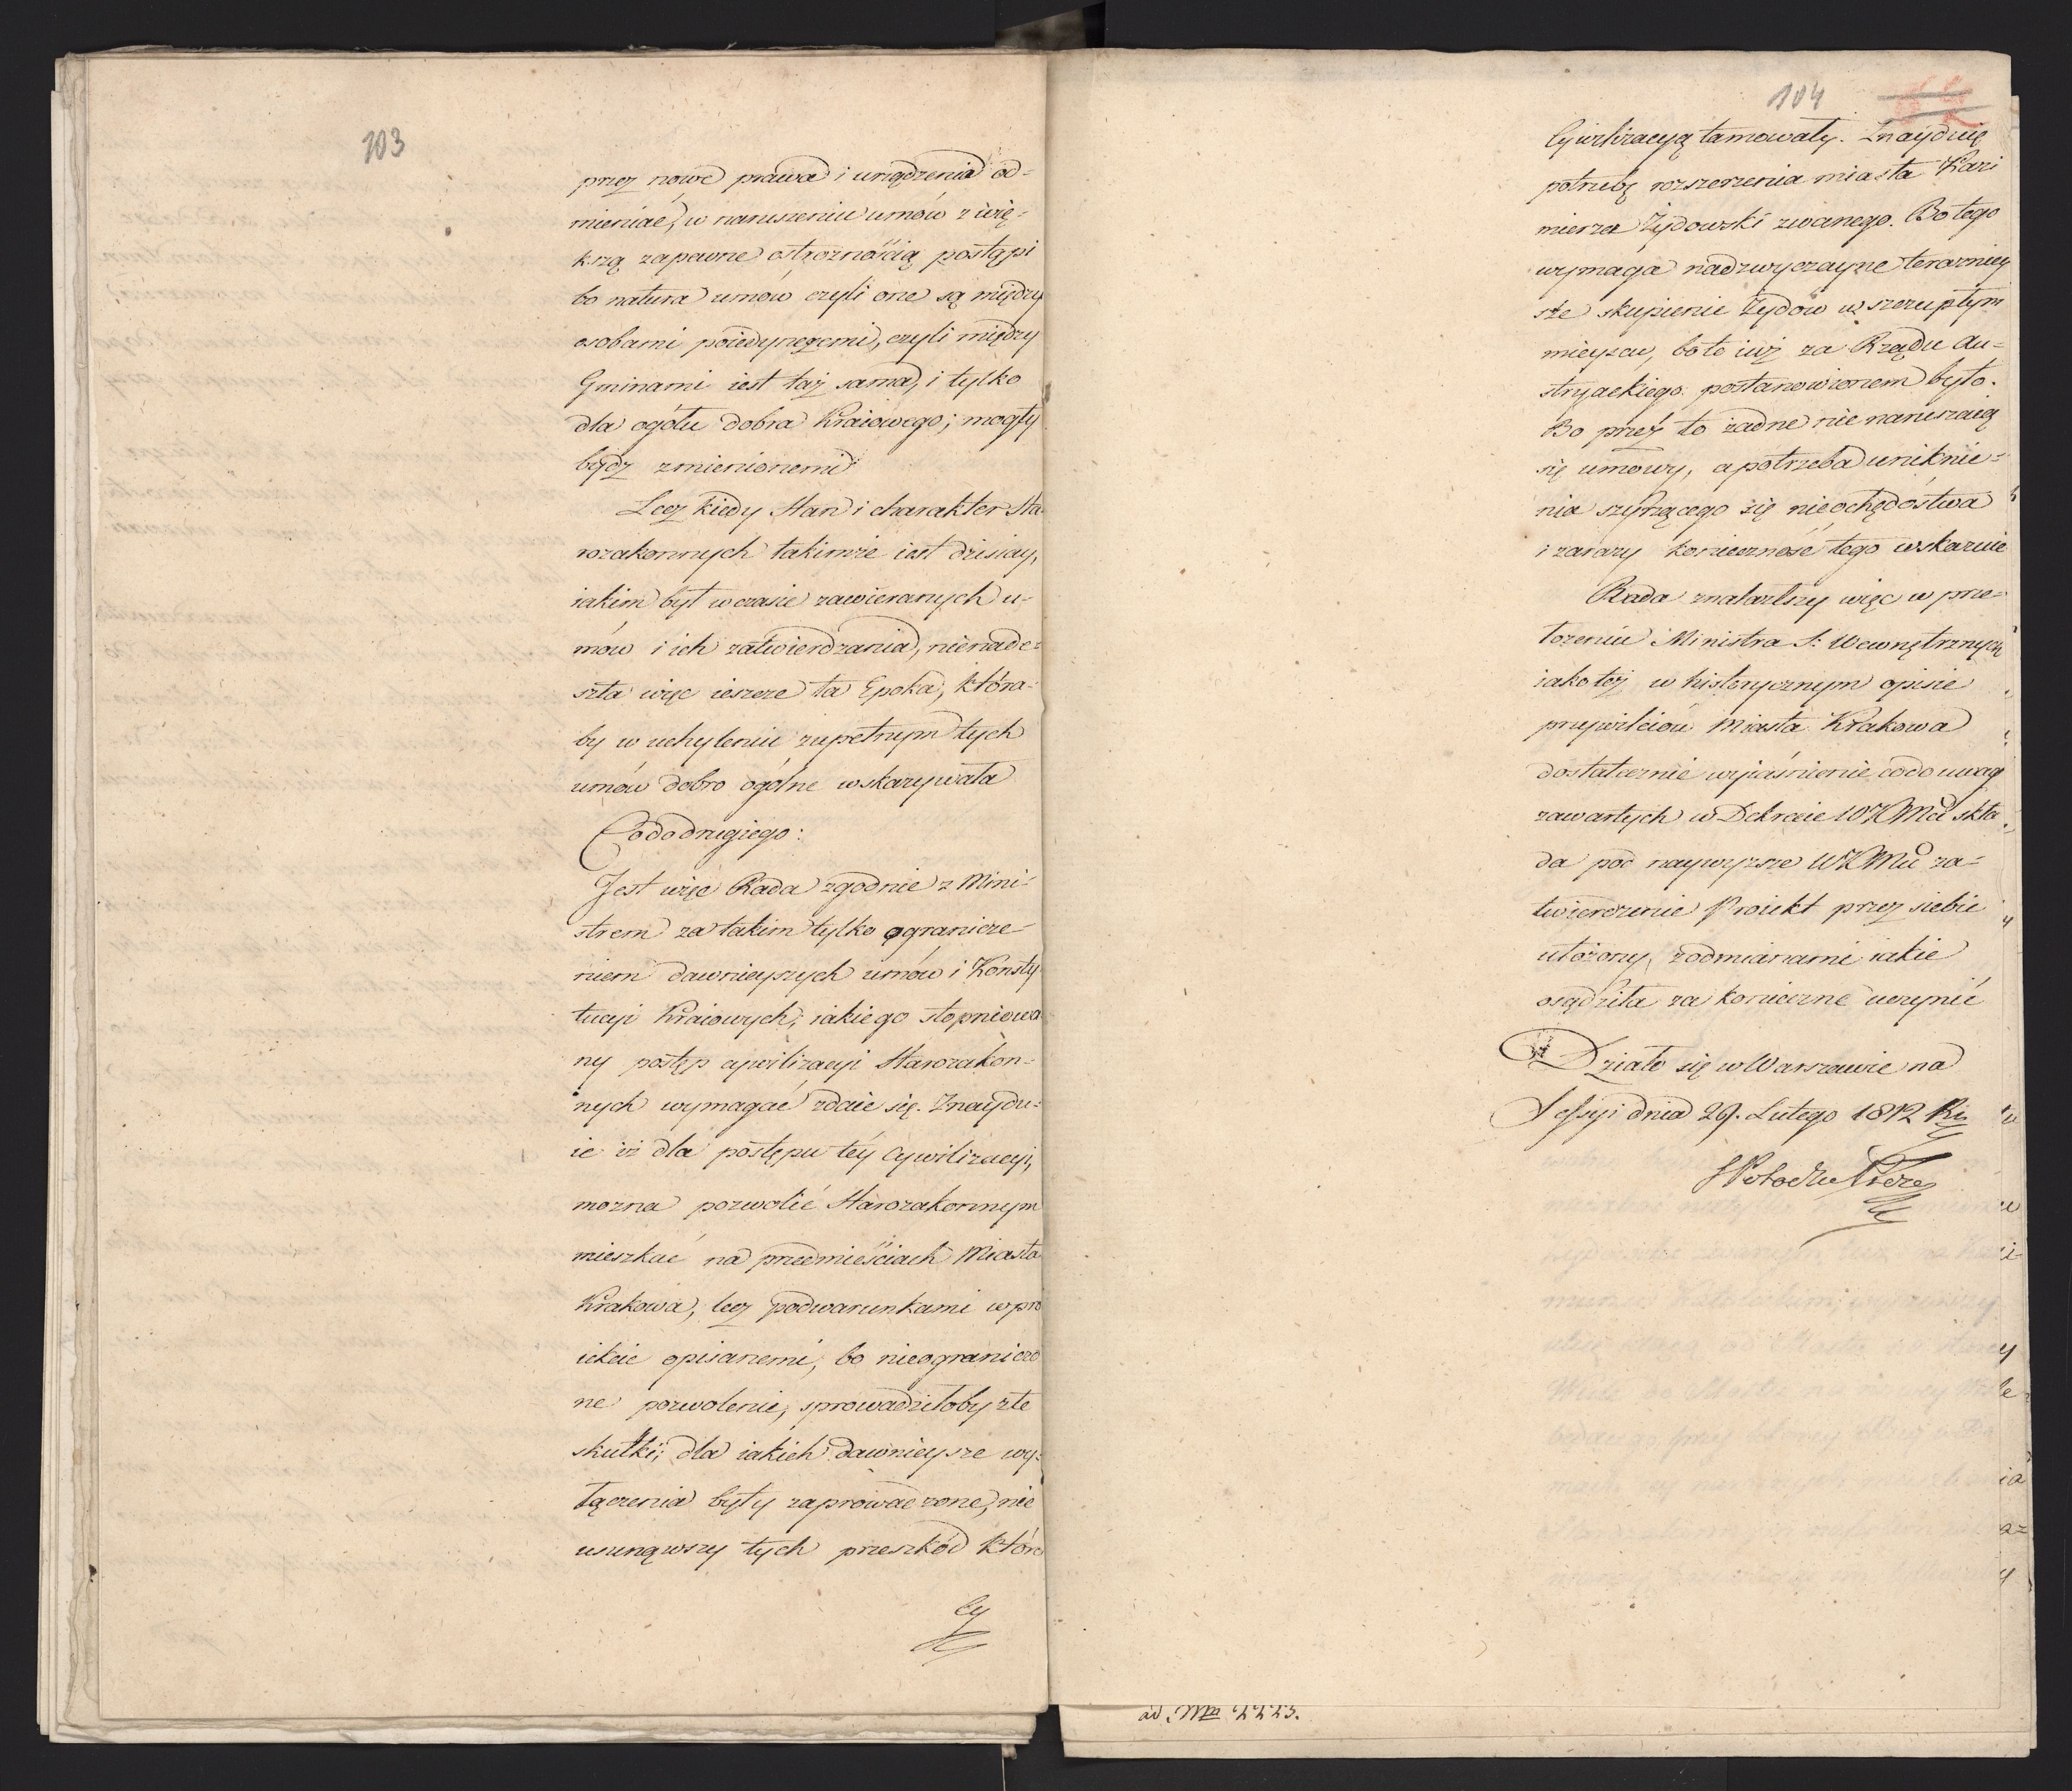 103
przez nowe prawa i urządzenia od=
mieniać, w naruszeniu umów z wię=
kszą zapewne ostrożnością postąpi
bo natura umów czyli one są między
osobami poiedynczemi, czyli między
Gminami iest taż sama, i tylko
dla ogółu dobra Kraiowego; mogły
bydz zmienionemi
Lecz kiedy Stan i charakter Sta=
rozakonnych takimże iest dzisiay,
iakim był w czasie zawieranych u=
mów i ich zatwierdzania, nienade=
szła więc ieszcze ta Epoka, która=
by w uchyleniu zupełnym tych
umów dobro ogólne wskazywała
Co do drugiego:
Jest więc Rada zgodnie z Mini=
strem za takim tylko ogranicze=
niem dawnieyszych umów i Konsty
tucyi Kraiowych, iakiego stopniowa
ny postęp cywilizacyi Starozakon=
nych wymagać zdaie się. Znaydu=
ie iż dla postępu téy Cywilizacyi,
mozna pozwolić Starozakonnym
mieszkać na przedmieściach Miasta
Krakowa, lecz pod warunkami w pro
iekcie opisanemi, bo nieograniczo
ne pozwolenie, sprowadziłoby złe
skutki; dla iakich dawnieysze wy=
łączenia były zaprowadzone, nie
usunąwszy tych przeszkód które
Cy
104
Cywilizacyą tamowały. Znayduię
potrzebę rozszerzenia miasta Kazi
mierza Żydowski zwanego. Bo tego
wymaga nadzwyczayne teraźniey
sze skupienie Żydów w szczupłym
mieyscu, bo to iuż za Rządu Au=
stryackiego postanowionem było.
Bo przez to żadne nie naruszaią
się umowy, a potrzeba uniknie=
nia szyrzącego się nieochędóstwa
i zarazy konieczność tego wskazuie
Rada znalazłszy więc w prze=
łożeniu Ministra S: Wewnętrznych
iako też w historycznym opisie
przywileiów Miasta Krakowa
dostatecznie wyiaśnienie co do uwag
zawartych w Dekrecie WKMci skła
da pod naywyższe WKMci za=
twierdzenie Proiekt przez siebie
ułożony, z odmianami iakie
osądziła za konieczne uczynić
Działo się w Warszawie na
Sessyi dnia 29. Lutego 1812 R.
ad. Nrm 2223.